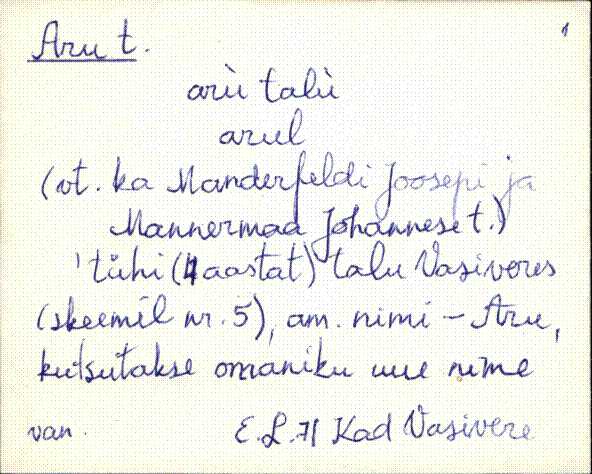 Aru t. 1
arù talù
arul
(vt. ka Manderfeldi Joosepi ja
Mannermaa Johannese t.)
'tühi (4 aastat) talu Vasiveres
(skeemil nr. 5), am. nimi - Aru,
kutsutakse omaniku uue nime
van. E.L. 71 Kad Vasivere